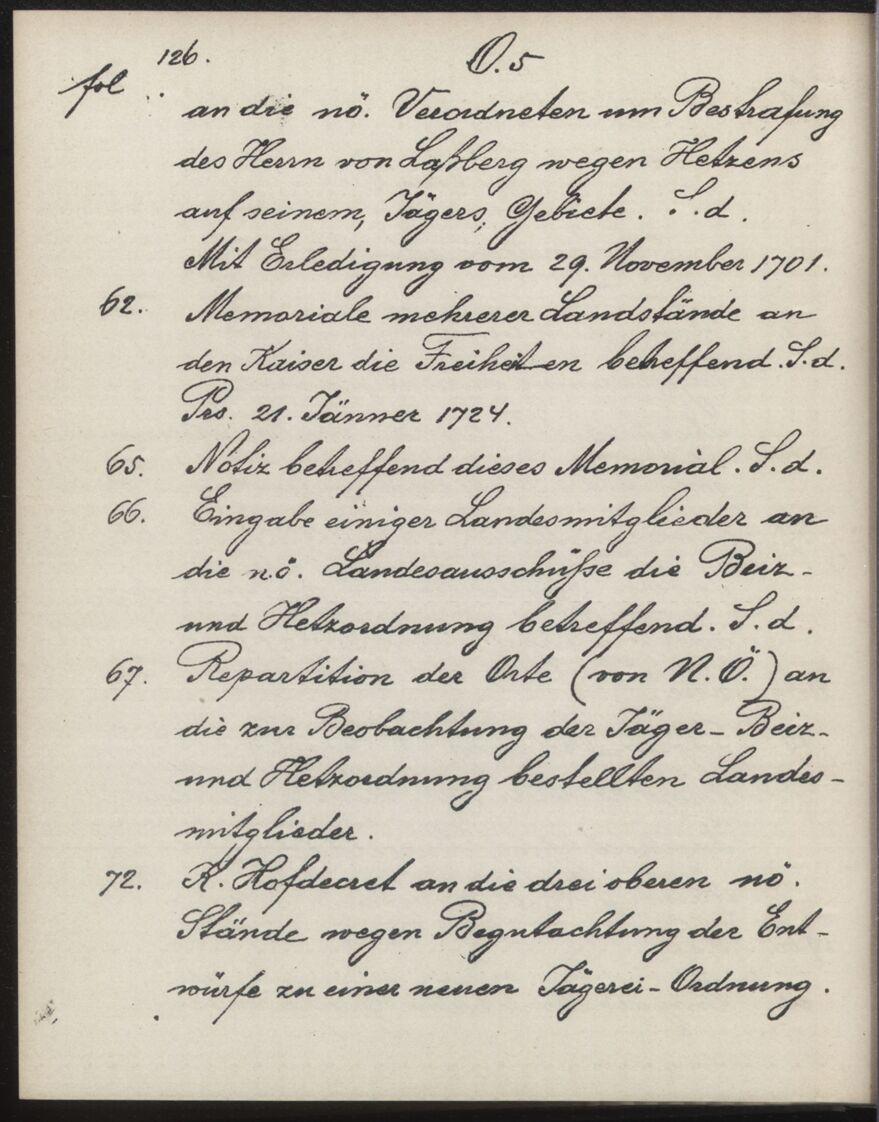 126. O.5
fol
an die nö. Verordneten um Bestrafung
des Herrn von Laßberg wegen Hetzens
auf seinem, Jägers, Gebiete. S.d.
Mit Erledigung vom 29. November 1701.
62. Memoriale mehrerer Landstände an
den Kaiser die Freiheiten betreffend. S.d.
Prs. 21. Jänner 1724.
65. Notiz betreffend dieses Memorial. S.d.
66. Eingabe einiger Landesmitglieder an
die n.ö. Landesausschüße die Beiz-
und Hetzordnung betreffend. S.d.
67. Repartition der Orte (von N.Ö.) an
die zur Beobachtung der Jäger- Beiz-
und Hetzordnung bestellten Landes-
mitglieder.
72. K. Hofdecret an die drei oberen nö.
Stände wegen Begutachtung der Ent-
würfe zu einer neuen Jägerei-Ordnung.